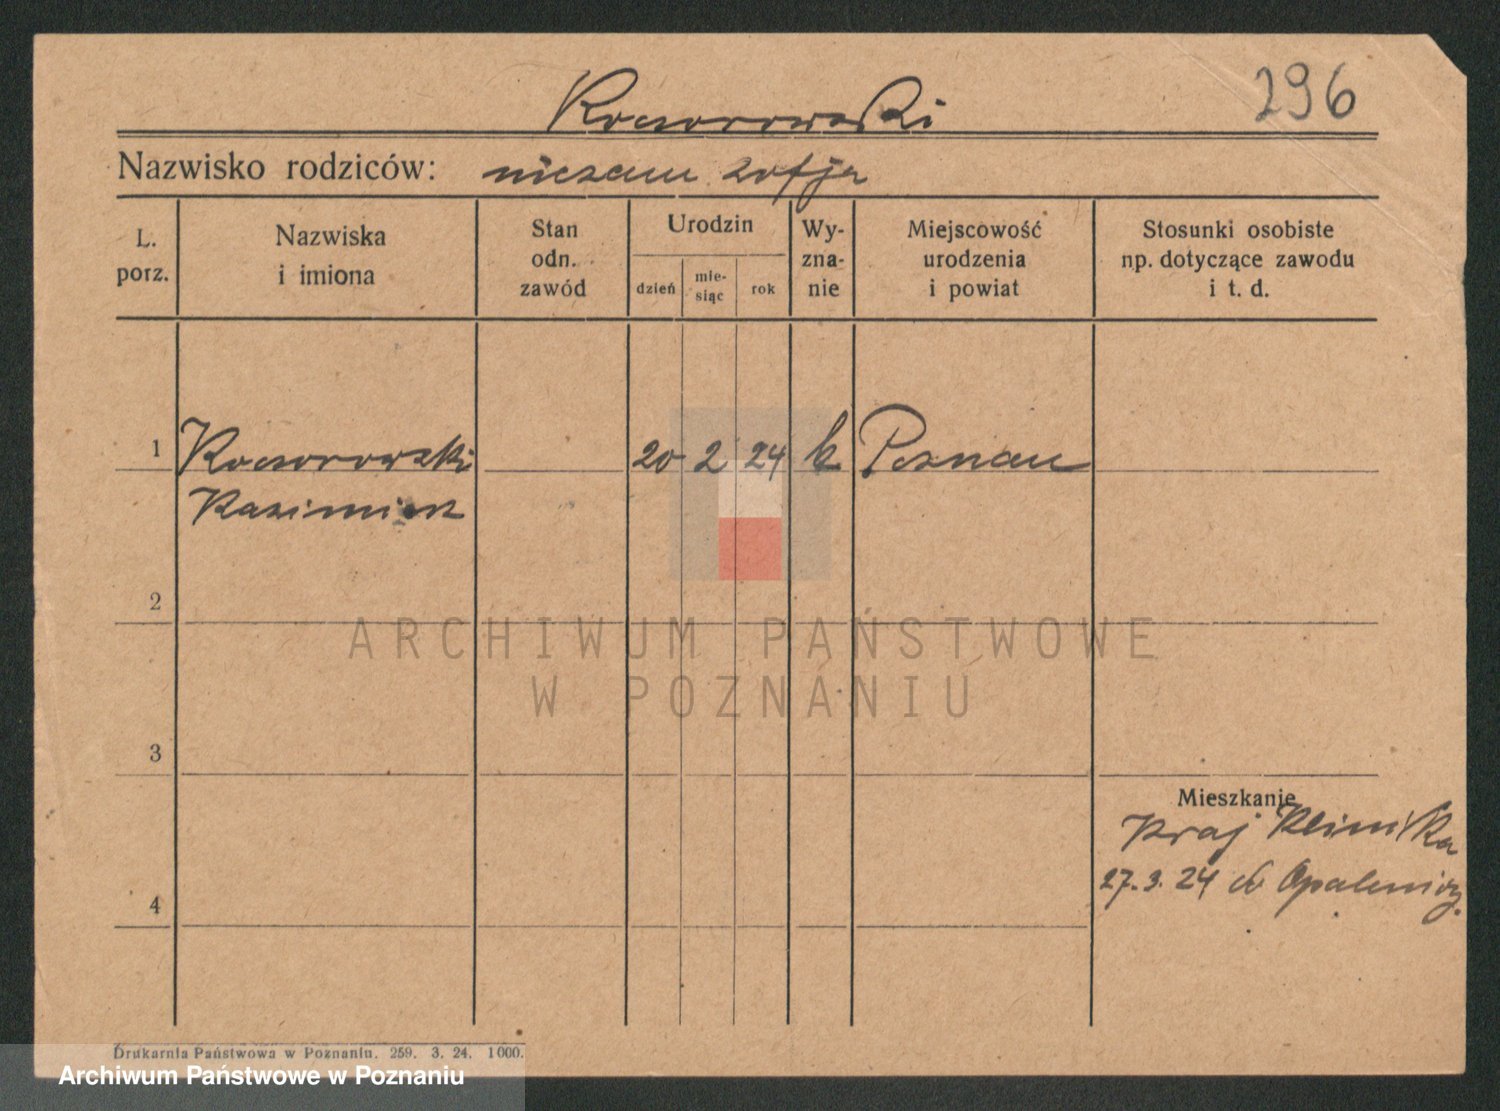 296
Koczorowski
Nazwisko rodziców: niezam Zofja
L. porz.
Nazwiska i imiona
Stan odn. zawód
Urodzin
dzień
mie-siąc
rok
Wy-zna-nie
Miejscowość urodzenia i powiat
Stosunki osobiste np. dotyczące zawodu i t. d.
1 Koczorowski 20 2 24 k Poznań
Kazimierz
2
3
4
Mieszkanie
Kraj Klinika
27.3.24 do Opalenicy.
Drukarnia Państwowa w Poznaniu. 259. 3. 24. 1000.
ARCHIWUM PAŃSTWOWE
W POZNANIU
Archiwum Państwowe w Poznaniu